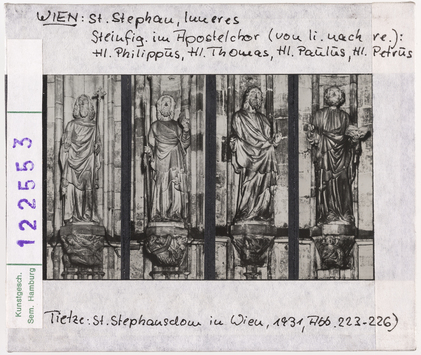 WIEN: St. Stephan, Inneres
Steinfig. im Apostelchor (von li. nach re.):
Hl. Philippus, Hl. Thomas, Hl. Paulus, Hl. Petrus
122553
Kunstgesch.
Sem. Hamburg
Tietze: St. Stephansdom in Wien, 1931, Abb. 223-226)